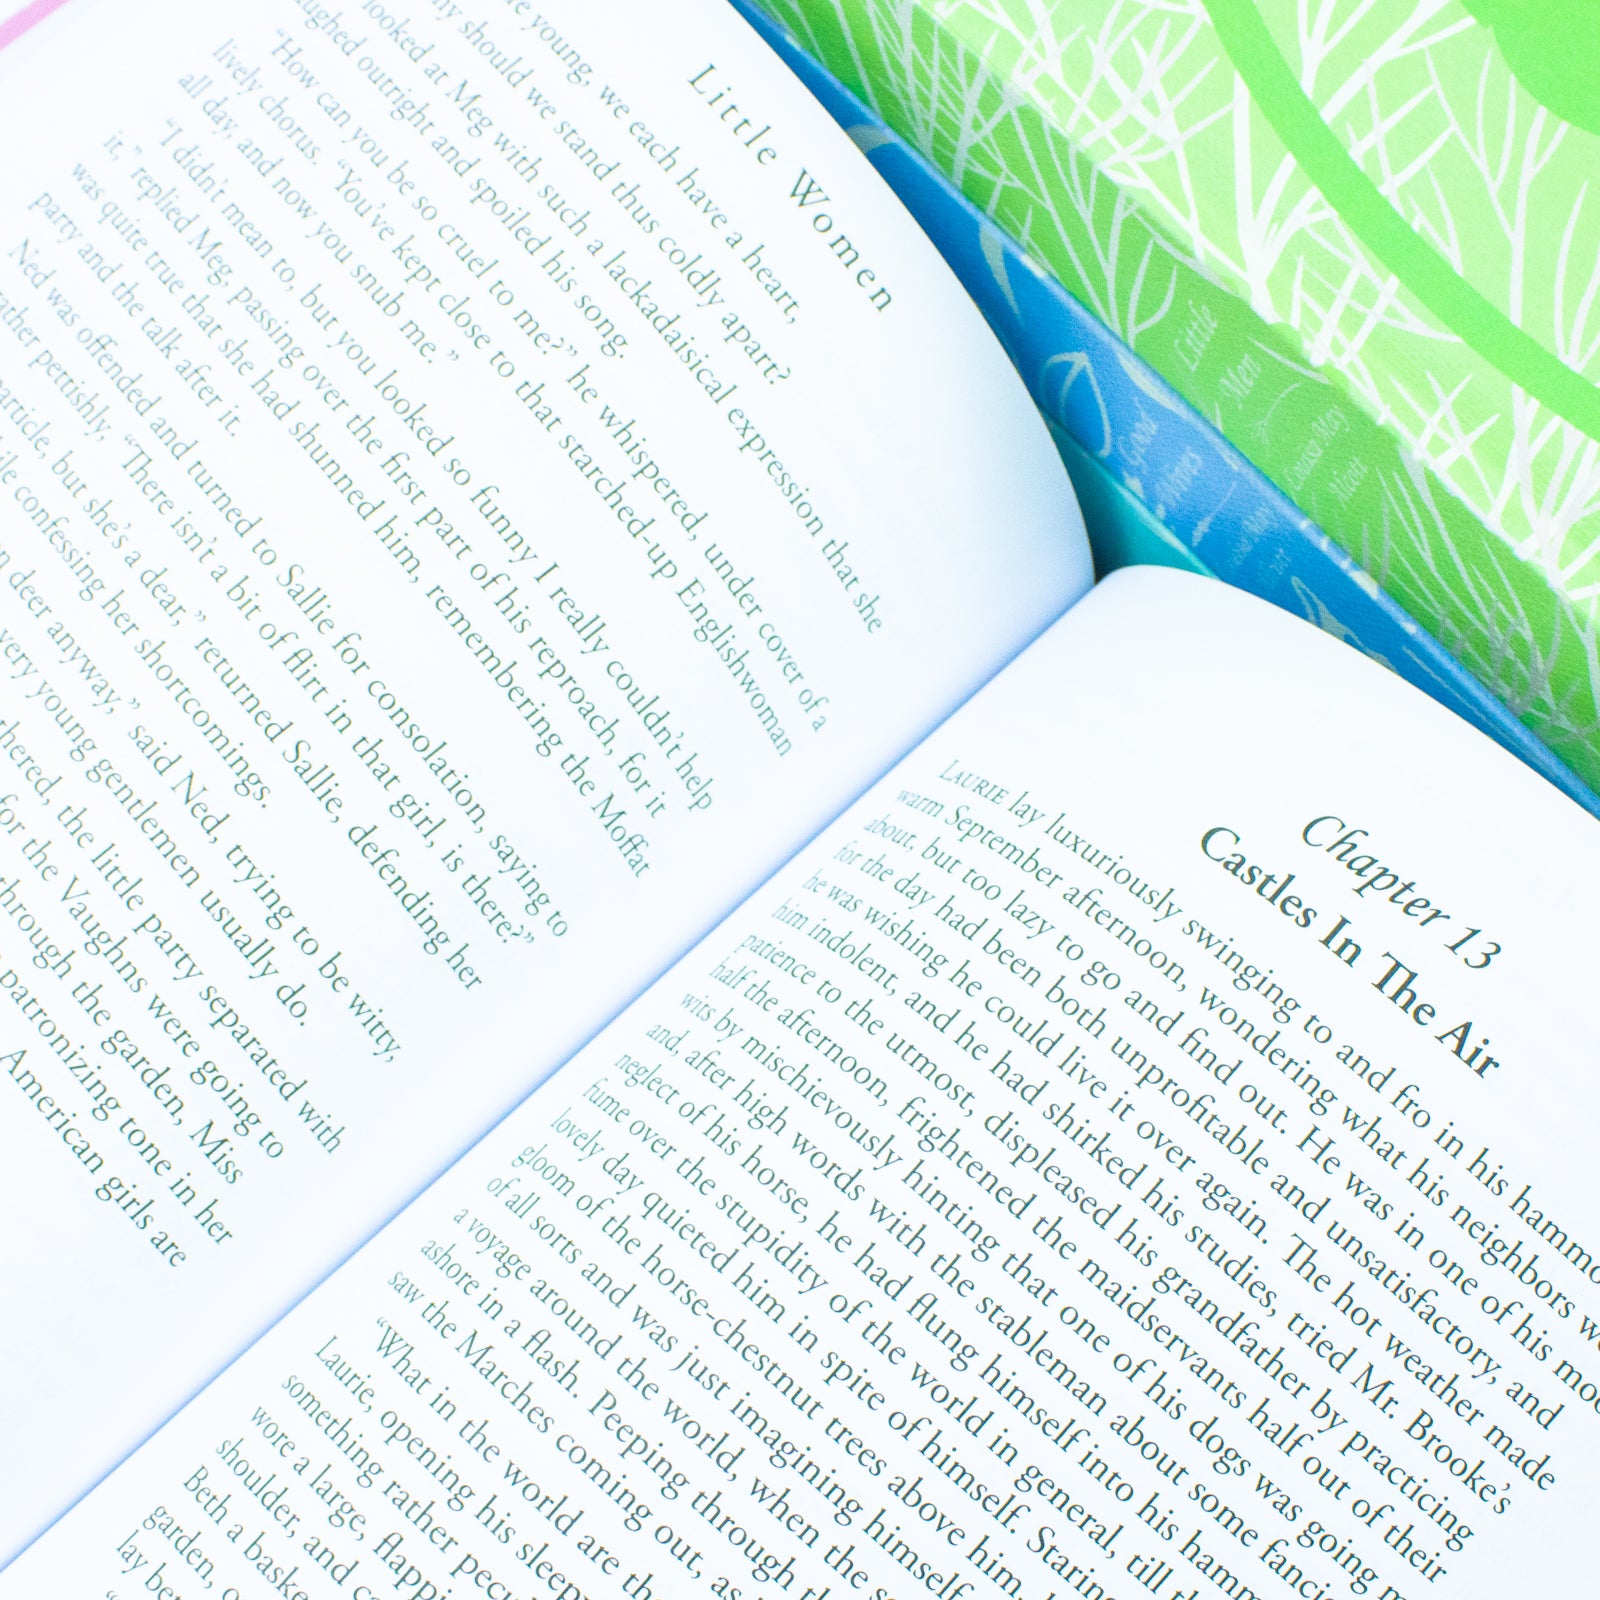 Little Women
re young, we each have a heart,
ny should we stand thus coldly apart?
looked at Meg with such a lackadaisical expression that she
ughed outright and spoiled his song.
“How can you be so cruel to me?” he whispered, under cover of a
lively chorus. “You’ve kept close to that starched-up Englishwoman
all day, and now you snub me.”
“I didn’t mean to, but you looked so funny I really couldn’t help
it,” replied Meg, passing over the first part of his reproach, for it
was quite true that she had shunned him, remembering the Moffat
party and the talk after it.
Ned was offended and turned to Sallie for consolation, saying to
rather pettishly, “There isn’t a bit of flirt in that girl, is there?”
particle, but she’s a dear,” returned Sallie, defending her
ile confessing her shortcomings.
n deer anyway,” said Ned, trying to be witty,
very young gentlemen usually do.
thered, the little party separated with
for the Vaughns were going to
through the garden, Miss
patronizing tone in her
American girls are
Chapter 13
Castles In The Air
LAURIE lay luxuriously swinging to and fro in his hammo
warm September afternoon, wondering what his neighbors we
about, but too lazy to go and find out. He was in one of his moo
for the day had been both unprofitable and unsatisfactory, and
he was wishing he could live it over again. The hot weather made
him indolent, and he had shirked his studies, tried Mr. Brooke’s
patience to the utmost, displeased his grandfather by practicing
half the afternoon, frightened the maidservants half out of their
wits by mischievously hinting that one of his dogs was going m
and, after high words with the stableman about some fancie
neglect of his horse, he had flung himself into his hamm
fume over the stupidity of the world in general, till th
lovely day quieted him in spite of himself. Starin
gloom of the horse-chestnut trees above him,
of all sorts and was just imagining himself
a voyage around the world, when the so
ashore in a flash. Peeping through th
saw the Marches coming out, as i
“What in the world are th
Laurie, opening his sleepy
something rather pecu
wore a large, flappi
shoulder, and ca
Beth a baske
garden, o
lay bet
Little
Men
Louisa May
Alcott
Good
Wives